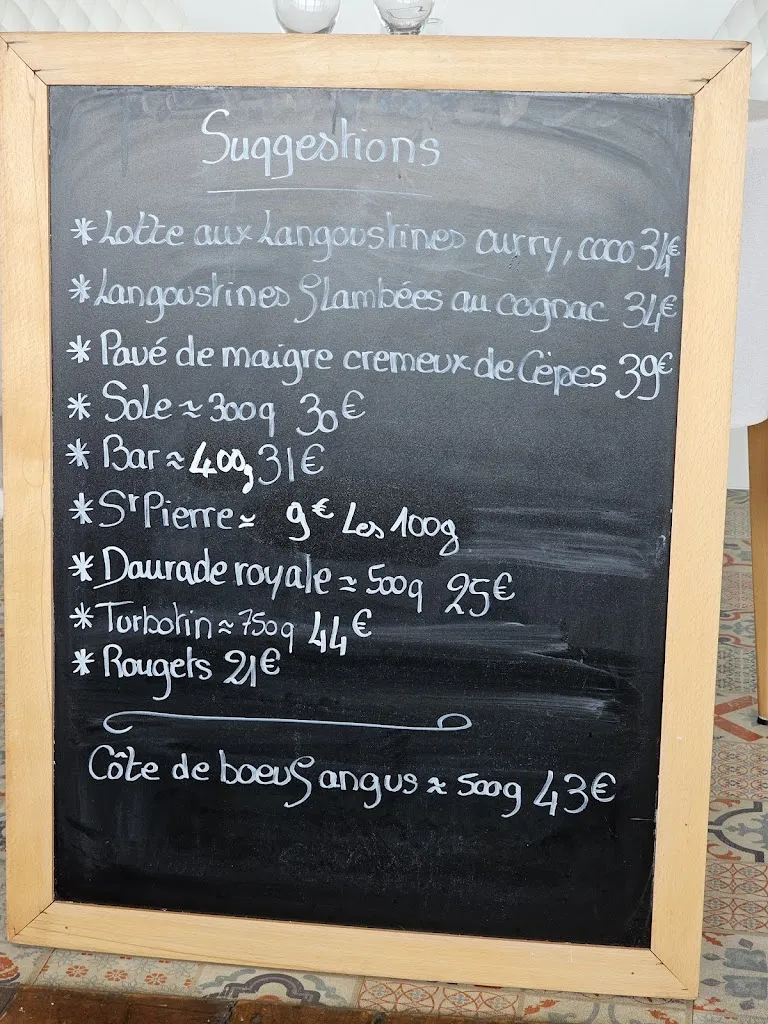 Suggestions
* Lotte aux Langoustines curry, coco 34€
* Langoustines flambées au cognac 34€
* Pavé de maigre cremeux de Cèpes 39€
* Sole ≈ 300g 30€
* Bar ≈ 400g 31€
* St Pierre ≈ 9€ Les 100g
* Daurade royale ≈ 500g 25€
* Turbotin ≈ 750g 44€
* Rougets 21€
Côte de boeuf angus ≈ 500g 43€